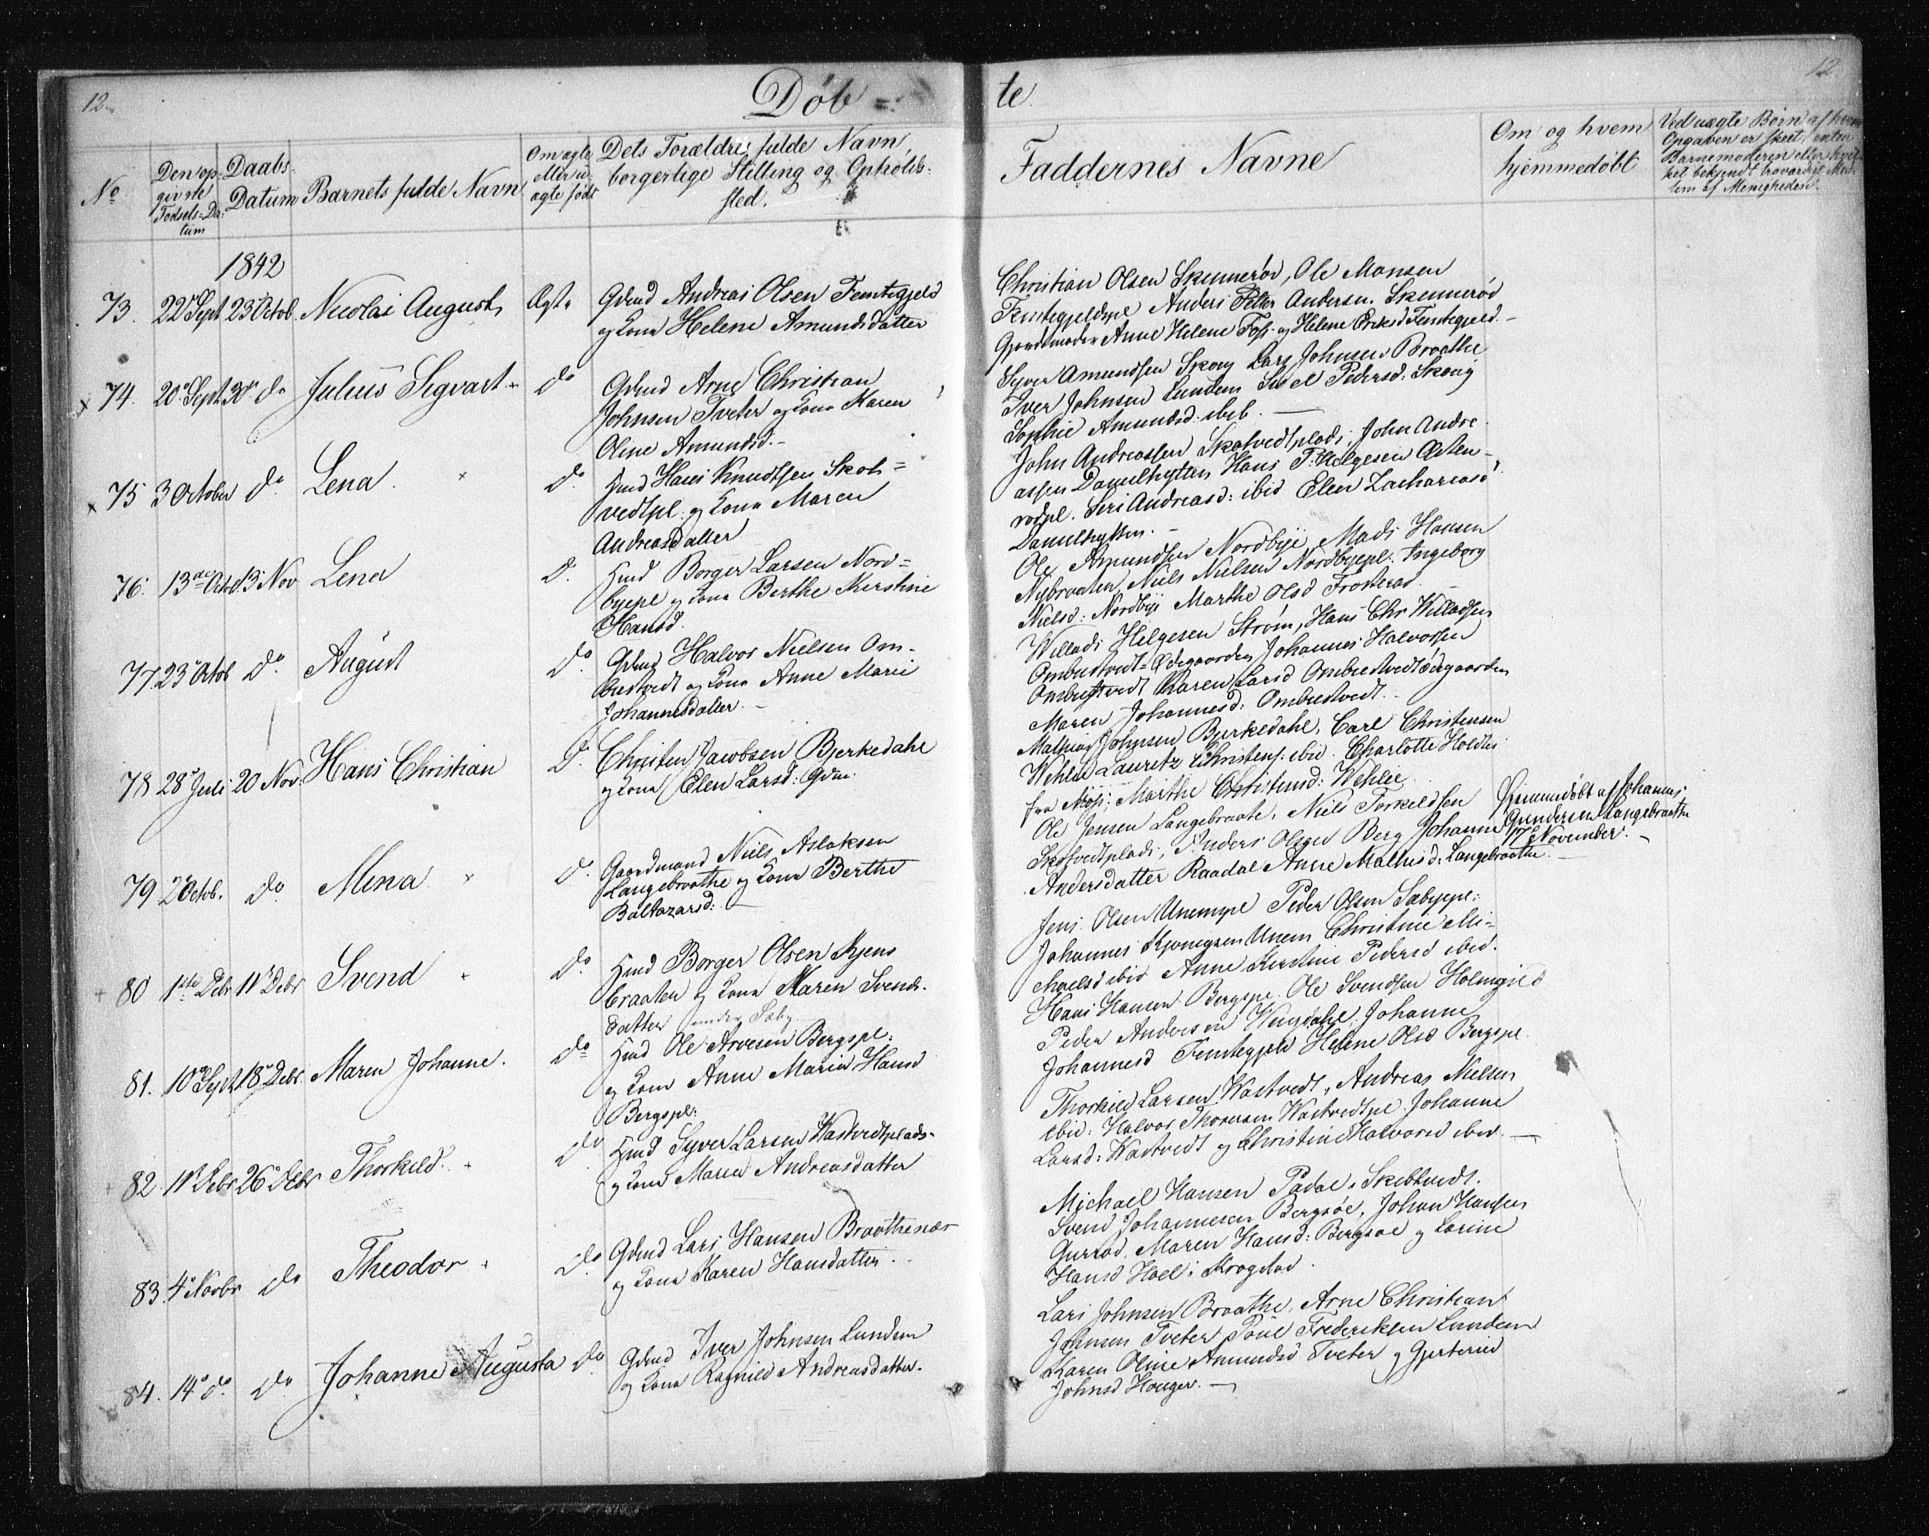 12.
Døb=
te
12.
No
Den opgivne Fødsels-Datum
Daabs-Datum
Barnets fulde Navn
Om ægte eller uægte født
Dets Forældres fulde Navn, borgerlige Stilling og Opholdssted.
Faddernes Navne
Om og hvem hjemmedøbt
Ved uægte Børn af hvem Opgaven er skeet, enten Barnemoderen eller hvilket bekjendt troværdigt Medlem af Menigheden.
1842
73. 22de Sept 23 Octob. Nicolai August, Ægte
Gdmd Andreas Olsen Femtegjeld
og Kona Helene Amundsdatter
Christian Olsen Skennerøv, Ole Monsen
Femtegjeldspl Anders Peter Andersn. Skennerød
Gjordemoder Anne Helene Foss og Helene Eriksd Femtegjeld.
74. 20 Sept 30 do Julius Sigvart do
Gdmd Arne Christian
Johnsen Tveter og Kona Karen
Oline Amundsd.
Syver Amundsen Skoug Lars Johnsen Braathe
Iver Johnsen Lunden Pedersd: Skoug
Sophie Amundsd ibid.
75 3 October do Lena. do
Hmd Hans Knudtsen Skot=
vedtpl: og Kona Maren
Andreasdatter
John Andreassen Skotvedtplads, John Andre
assen Danielhytten Hans Helgesen Østen-
rødpl. Siri Andreasd: ibid Elen Zachariasd
Danielhytten.
76. 13de Octo 13 Nov Lena do
Hmd Borger Larsen Nord=
byepl og Kona Berthe Kirstine
Hansd.
Ole Amundsen Nordbye, Mads Hansen
Nybraaten, Niels Nielsen Nordbyepl: Ingeborg
Nielsd: Nordbye Marthe Olsd Frosterød.
77. 23 Octob do August do
Gdmd Halvor Nielsen Om-
bustvedt og Kona Anne Marie
Johannesdatter.
Willads Helgesen Strøm, Hans Chr Willadsen
Ombustvedt=Ødegaarden Johannes Halvorsen
Ombustvedt Karen Larsd Ombustvedtødegaarden
Maren Johannesd: Ombustvedt.
78 28 Juli 20 Nov. Hans Christian do
Christen Jacobsen Bjerkedahl
og Kona Elen Larsd: Gdm.
Mathias Johnsen Bjerkedahl, Carl Christensen
Wehler Lauritz Christens: ibid. Charlotte Holdtes
fra Moss: Marthe Christensd: Wehler
79 2 Octob. do Mina do
Gaardmand Niels Aslaksen
Langebraathe og Kona Berthe
Baltazarsd:
Ole Jensen Langebraate, Niels Torkeldsen
Skotvedtplads, Anders Olsen Berg Johanne
Andersdatter Raadal Anne Mathisd: Langebraathe.
Hjemmedøbt af Johannes
Gundersen Langebraathe
17 November.
80 1ste Debr 11 Debr Svend do
Hmd Borger Olsen Kjens
braaten og Kona Maren Svends-
datter under Saby
Jens Olsen Unempl Peder Olsen Sabyepl:
Johannes Unem Christine Mi-
chaelsd ibid Anne Kirstine Pedersd ibid.
81. 10 Sept 18 Debr Maren Johanne. do
Hmd Ole Arvesen Bergspl:
og Kona Anne Maria Hansd
Bergspl:
Hans Hansen Bergspl. Ole Svendsen Holmgild
Peder Andersen Wengdahl, Johanne
Johannesd Femtegjeld Helene Olsd Bergspl.
82. 11 Debr 26 Debr Thorkild. do
Hmd Syver Larsen Wastvedtplads.
og Kona Maren Andreasdatter
Thorkild Larsen Wastvedt, Andreas Nielsen
ibid: Halvor Thoresen Wastvedtpl. Johanne
Larsd: Wastvedt og Christine Halvorsd ibid.
83. 4 Novbr do Theodor do
Gdmd Lars Hansen Braathenær
og Kona Karen Hansdatter.
Michael Hansen Padal i Skibtvedt.
Svend Johannesen Bergsøe, Johan Hansen
Gurrød, Maren Hansd: Bergsøe og Karine
Hansd Hoel i Krogstad.
84. 14 do do Johanne Augusta do
Gdmd Iver Johnsen Lunden
og Kona Ragnild Andreasdatter.
Lars Johnsen Braathe, Arne Christian
Johnsen Tveter Poul Frederiksen Lunden
Karen Oline Amundsd Tveter og Gjertrud
Johnsd Houger.